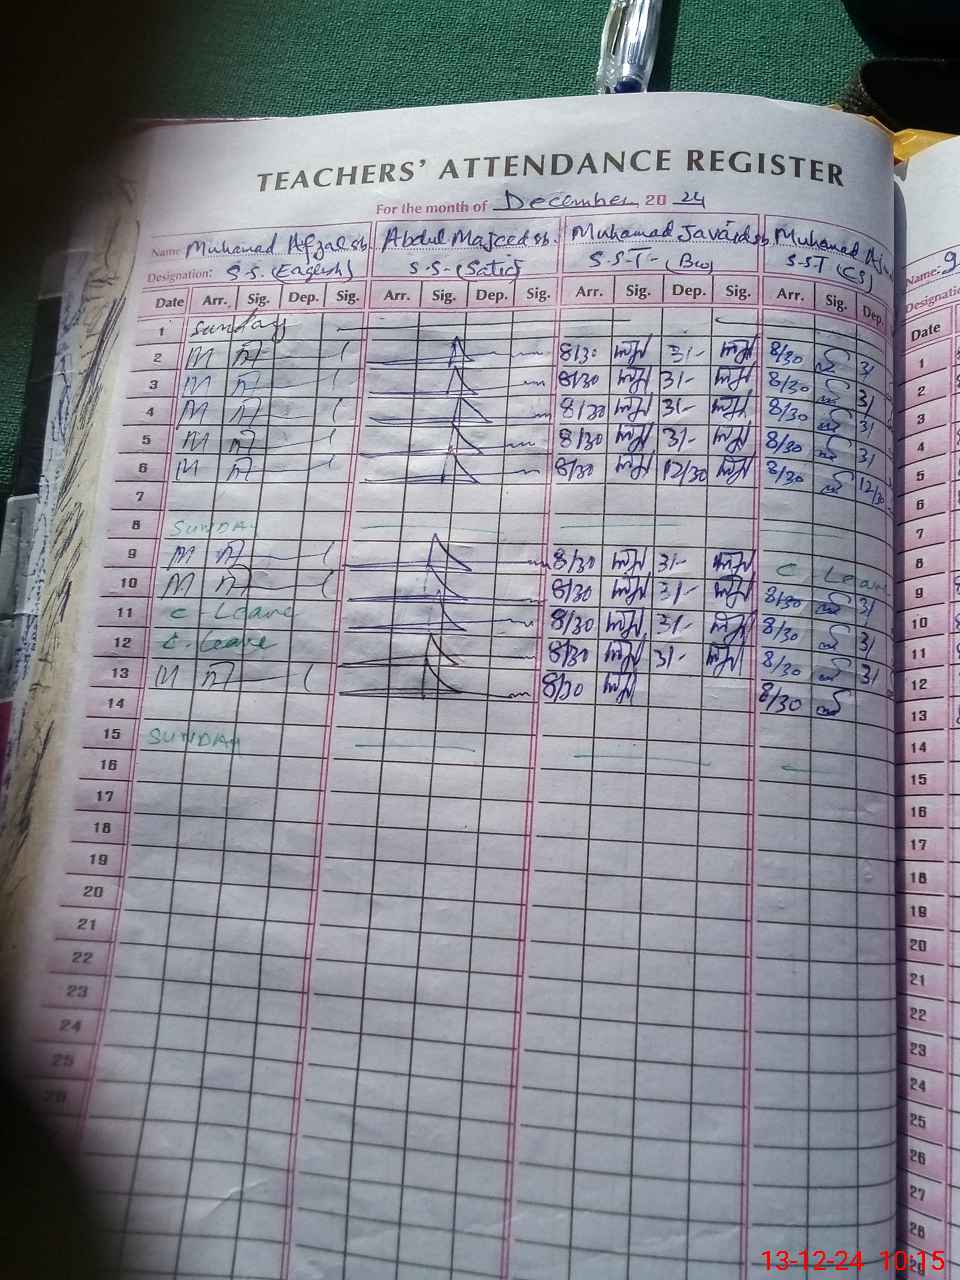 TEACHERS' ATTENDANCE REGISTER
For the month of December 2024
Name Muhamad Afzal sb. Abdul Majeed sb. Muhamad Javaid sb Muhamad
Designation: S.S. (English) S.S- S.S.T- S.ST (CS)
Date Arr. Sig. Dep. Sig. Arr. Sig. Dep. Sig. Arr. Sig. Dep. Sig. Arr. Sig. Dep.
1 Sunday
2 8/30 3/- 8/30 3/
3 8/30 3/- 8/30 3/
4 8/30 3/- 8/30 3/
5 8/30 3/- 8/30 3/
6 8/30 12/30 8/30 12/30
7
8 SUNDAY
9 8/30 3/- C Leave
10 8/30 3/- 8/30 3/
11 C. Leave 8/30 3/- 8/30 3/
12 C. Leave 8/30 3/- 8/30 3/
13 8/30 8/30
14
15 SUNDAY
16
17
18
19
20
21
22
23
24
25
26
Name:
Date
1
2
3
4
5
6
7
8
9
10
11
12
13
14
15
16
17
18
19
20
21
22
23
24
25
26
27
28
13-12-24 10:15